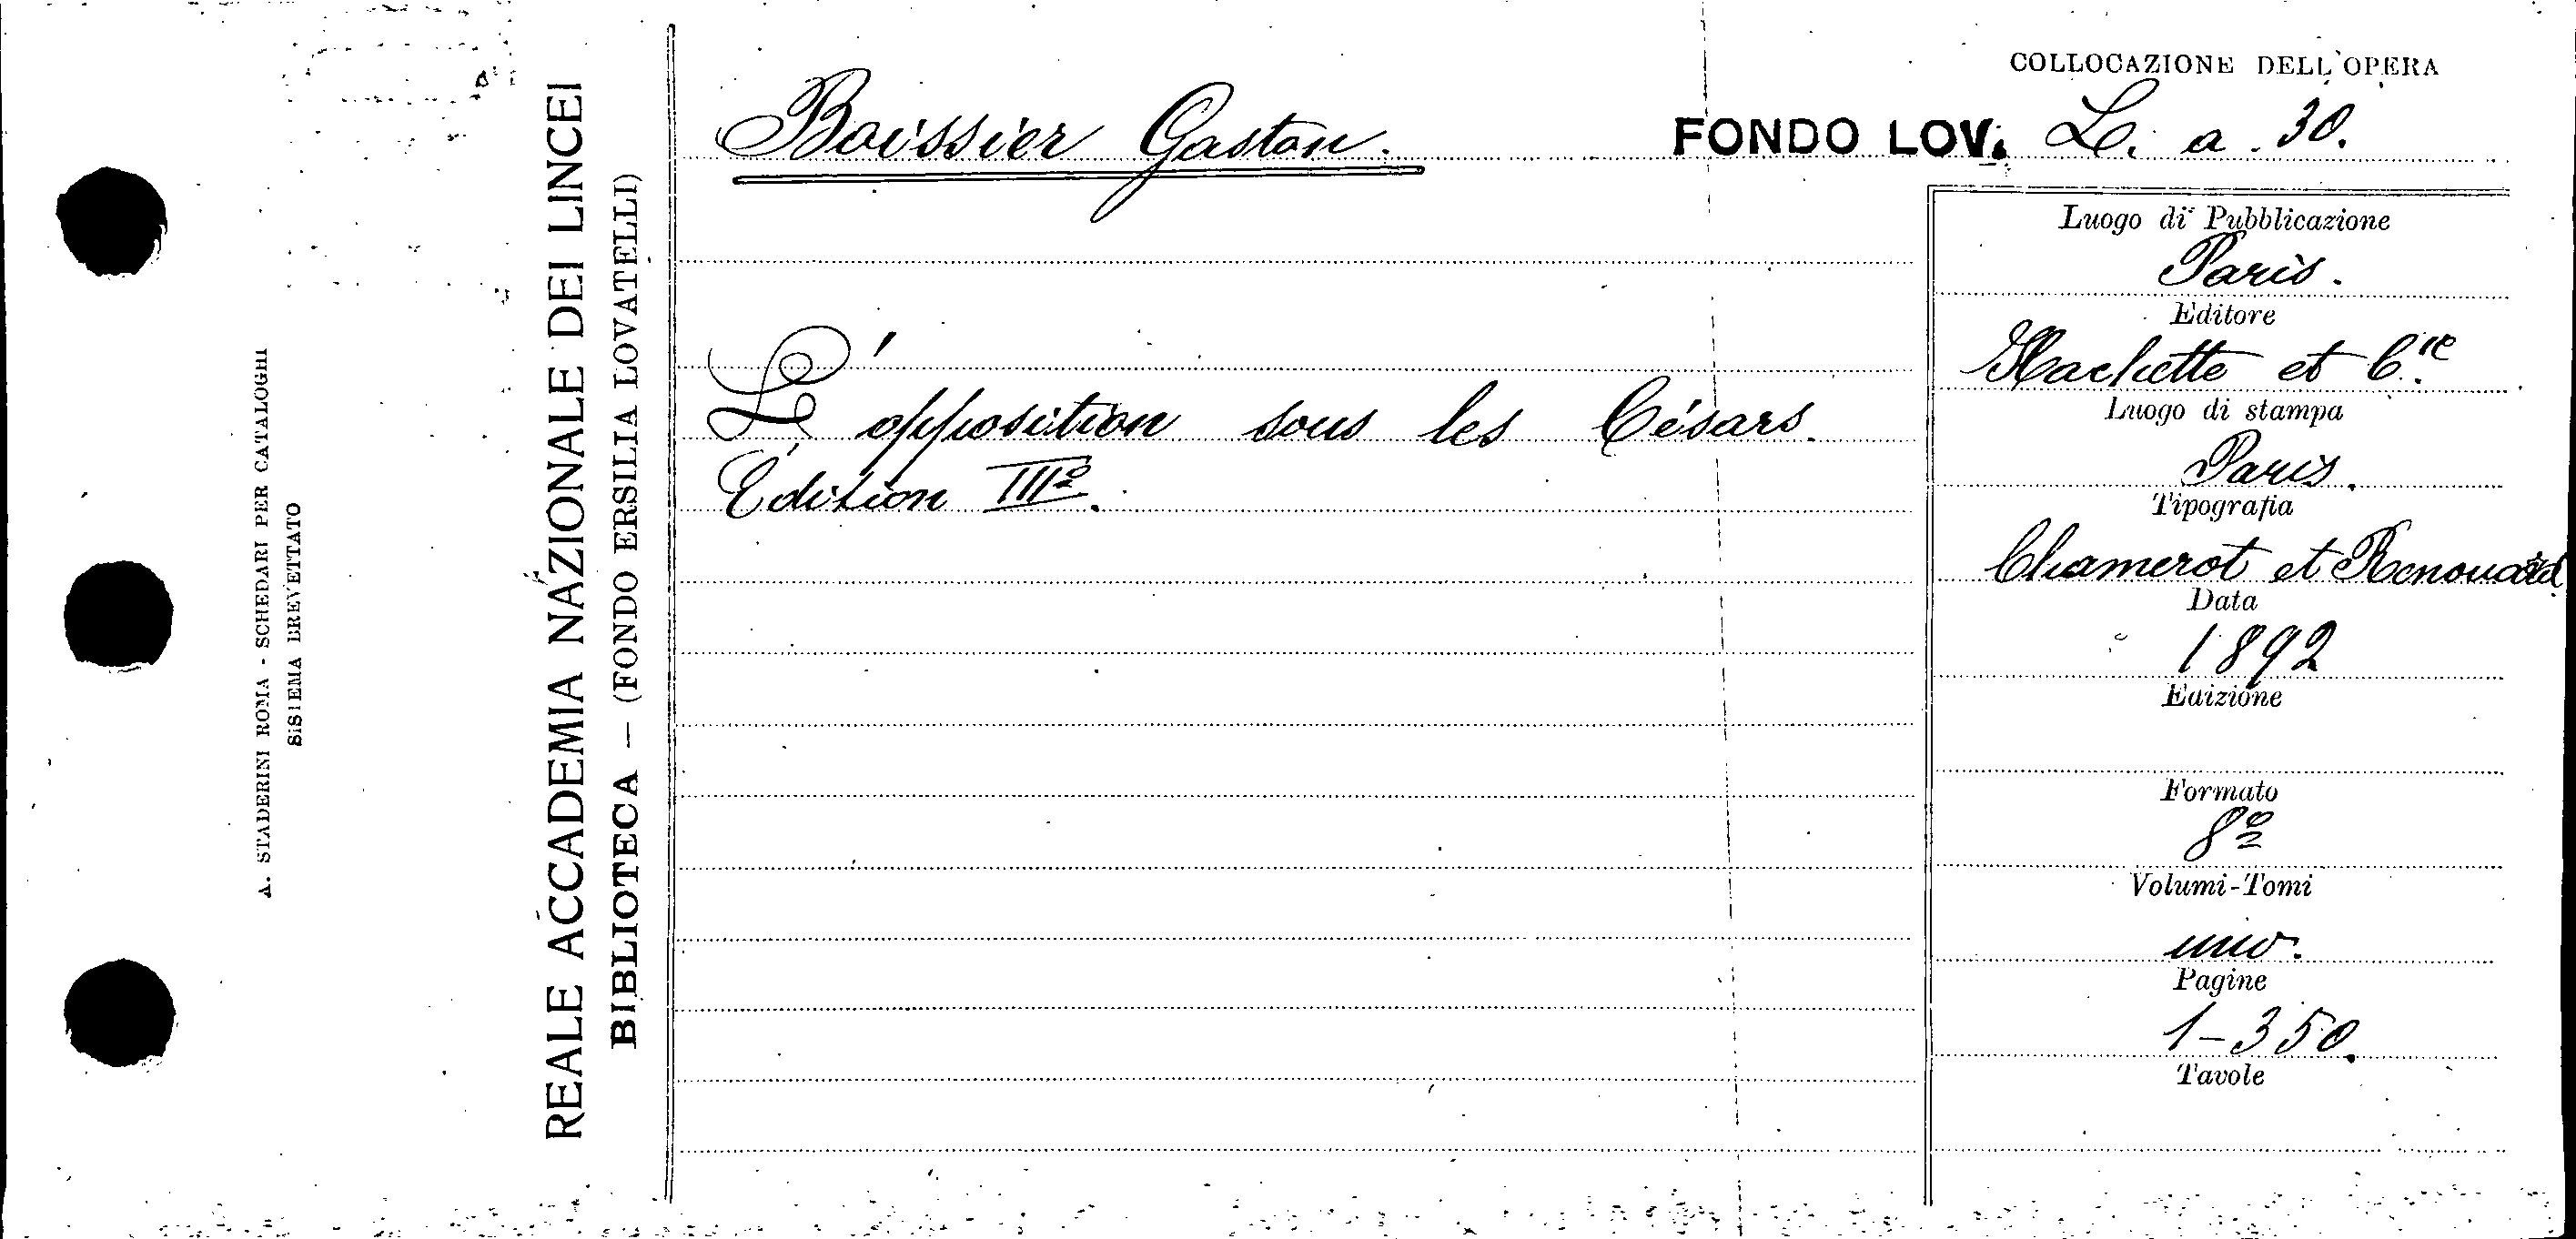 A. STADERINI ROMA - SCHEDARI PER CATALOGHI
SISTEMA BREVETTATO
REALE ACCADEMIA NAZIONALE DEI LINCEI
BIBLIOTECA — (FONDO ERSILIA LOVATELLI)
COLLOCAZIONE DELL'OPERA
Boissier Gaston.
FONDO LOV. L. a. 30.
Luogo di Pubblicazione
Paris.
Editore
Hachette et Cie.
L'opposition sous les Césars.
Luogo di stampa
Édition IIIº.
Paris.
Tipografia
Chamerot et Renouard
Data
1892
Edizione
Formato
8º
Volumi-Tomi
uno.
Pagine
1-350.
Tavole